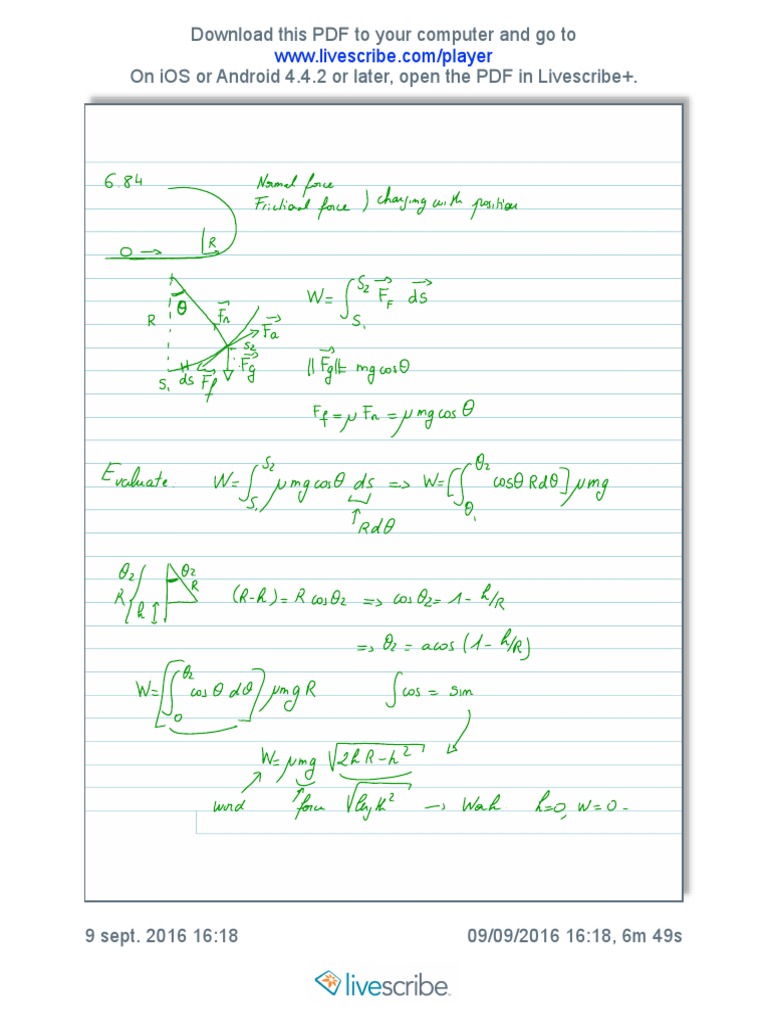 Download this PDF to your computer and go to
www.livescribe.com/player
On iOS or Android 4.4.2 or later, open the PDF in Livescribe+.
6.84
Normal force
Frictional force ) changing with position
R
θ
R
Fn
Fa
S2
Fg
S1 ds Ff
W= ∫S1^S2 F_F ds
||Fg||= mg cosθ
Ff = μ Fn = μ mg cos θ
Evaluate. W= ∫S1^S2 μ mg cosθ ds => W= [∫θ1^θ2 cosθ R dθ] μ mg
↑ R dθ
θ2 θ2
R h R
(R-h) = R cosθ2 => cosθ2 = 1 - h/R
=> θ2 = acos (1 - h/R)
W= [∫0^θ2 cosθ dθ] μ mg R ∫cos = sin
W= μ mg √2hR-h²
force √length² → Work h=0, W=0 -
9 sept. 2016 16:18
09/09/2016 16:18, 6m 49s
livescribe